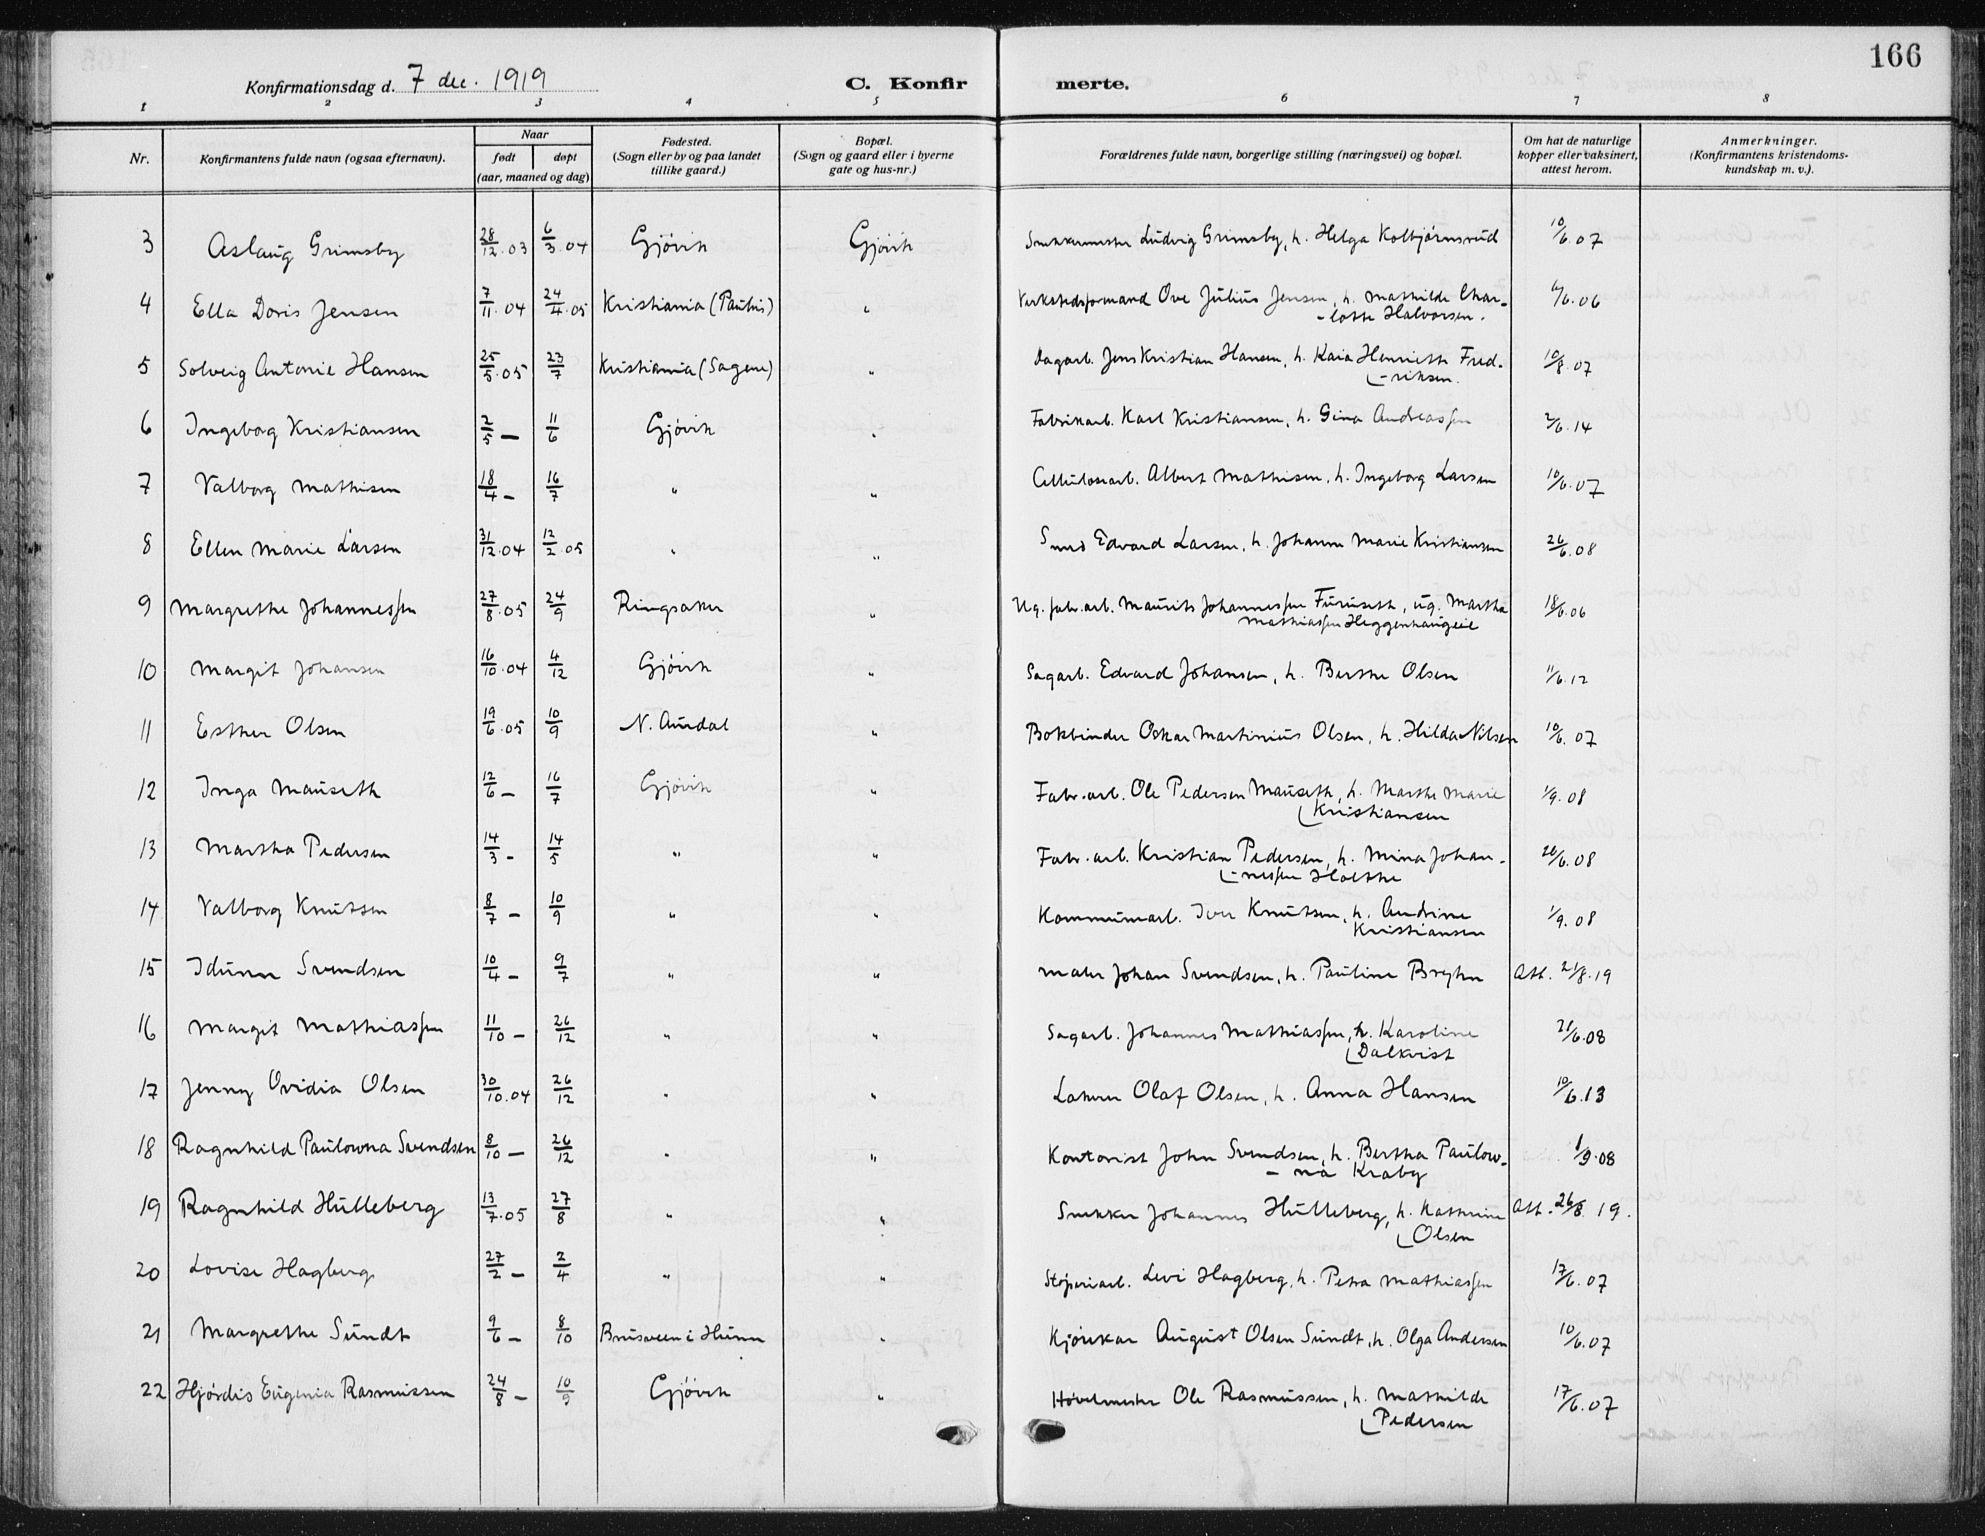 166
Konfirmationsdag d. 7 dec. 1919
C. Konfirmerte.
1 2 3 4 5 6 7 8
Nr. Konfirmantens fulde navn (ogsaa efternavn). Naar født døpt (aar, maaned og dag) Fødested. (Sogn eller by og paa landet tillike gaard.) Bopæl. (Sogn og gaard eller i byerne gate og hus-nr.) Forældrenes fulde navn, borgerlige stilling (næringsvei) og bopæl. Om hat de naturlige kopper eller vaksinert, attest herom. Anmerkninger. (Konfirmantens kristendoms-kundskap m. v.).
3 Aslaug Grimsby 28/12.03 6/3.04 Gjövik Gjövik Snekkermester Ludvig Grimsby, h. Helga Kolbjörnsrud 10/6.07
4 Ella Doris Jensen 7/11.04 24/4.05 Kristiania (Paulus) " Verkstedsformand Ove Julius Jensen, h. Mathilde Char-
-lotte Halvorsen. 6/6.06
5 Solveig Antonie Hansen 25/5.05 23/7 Kristiania (Sagene) " Dagarb. Jens Kristian Hansen, h. Kaia Henriette Fred-
-riksen. 10/8.07
6 Ingeborg Kristiansen 2/5 — 11/6 Gjövik " Fabrikarb. Karl Kristiansen, h. Gina Andreassen 2/6.14
7 Valborg Mathisen 18/4 — 16/7 " " Cellulosearb. Albert Mathisen, h. Ingeborg Larsen 10/6.07
8 Ellen Marie Larsen 31/12.04 12/2.05 " " Smed Edvard Larsen, h. Johanne Marie Kristiansen 26/6.08
9 Margrethe Johannessen 27/8.05 24/9 Ringsaker " Ug. fabr.arb. Maurits Johannessen Furuseth, ug. Martha
Mathiassen Heggenhaugeie 18/6.06
10 Margit Johansen 16/10.04 4/12 Gjövik " Sagarb. Edvard Johansen, h. Berthe Olsen 11/6.12
11 Esther Olsen 19/6.05 10/9 N. Aurdal " Bokbinder Oskar Martinius Olsen, h. Hilda Nilsen 10/6.07
12 Inga Mauseth 12/6 — 16/7 Gjövik " Fabr.arb. Ole Pedersen Mauseth, h. Marthe Marie
Kristiansen 1/9.08
13 Martha Pedersen 14/3 - 14/5 " " Fabr.arb. Kristian Pedersen, h. Mina Johan-
-nessen Holthe 26/6.08
14 Valborg Knutsen 8/7 — 10/9 " " Kommunearb. Iver Knutsen, h. Andrine
Kristiansen 1/9.08
15 Idunn Svendsen 10/4 — 9/7 " " Maler Johan Svendsen, h. Pauline Breyhn Att. 21/8.19
16 Margit Mathiassen 11/10 — 26/12 " " Sagarb. Johannes Mathiassen, h. Karoline
Dalkvist 21/6.08
17 Jenny Ovidia Olsen 30/10.04 26/12 " " Lakerer Olaf Olsen, h. Anna Hansen 10/6.13
18 Ragnhild Paulowna Svendsen 8/10 — 26/12 " " Kontorist John Svendsen, h. Bertha Paulow-
-na Kraby 1/9.08
19 Ragnhild Hulleberg 13/7.05 27/8 " " Snekker Johannes Hulleberg, h. Kathrine
Olsen Att. 26/8.19.
20 Lovise Hagberg 27/2 — 2/4 " " Støperiarb. Levi Hagberg, h. Petra Mathiassen 17/6.07
21 Margrethe Sundt 9/6 — 8/10 Brusveen i Hunn " Kjørekar August Olsen Sundt, h. Olga Andersen 10/6.07
22 Hjördis Eugenia Rasmussen 24/8 — 10/9 Gjövik " Høvelmester Ole Rasmussen, h. Mathilde
Pedersen 17/6.07